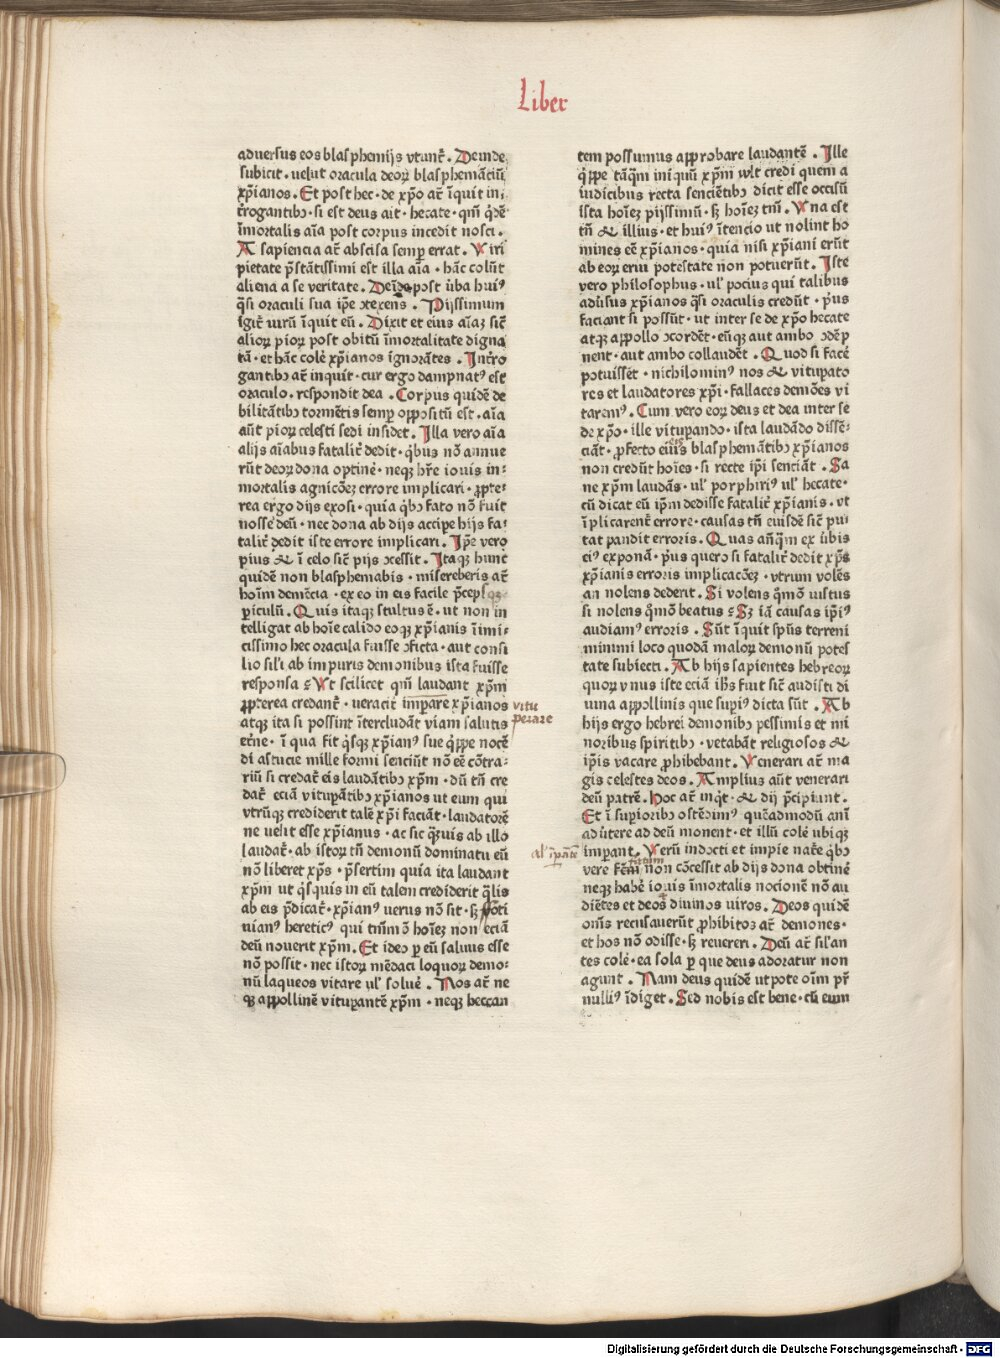 Liber
aduersus eos blasphemijs vtunt᷑ . Deinde
subicit · velut oracula deoꝝ blasphemãciũ
xp̃ianos . Et post hec · de xp̃o at᷑ ĩquit in⸗
t᷑rogantibꝫ · si est deus ait · hecate · qm̃ q̃dẽ
ĩmortalis aĩa post corpus incedit nosti .
A sapiencia at᷑ abscisa semp̲ errat . Viri
pietate p̃stãtissimi est illa aĩa · hãc colũt
aliena a se veritate . Deĩde post v̾ba huiꝰ
q̃si oraculi sua ip̃e ↄtexens . Pijssimum
igit᷑ virũ ĩquit eũ . Dixit et eius aĩaꝫ sic̃
alioꝝ pioꝝ post obitũ ĩmortalitate digna
tã · et hãc colẽ xp̃ianos ĩgnorãtes . Int᷑ro
gantibꝫ at᷑ inquit · cur ergo dampnatꝰ est
oraculo · respondit dea . Corpus quidẽ de
bilitãtibꝫ tormẽtis semp̲ oppositũ est · aĩa
aũt pioꝝ celesti sedi insidet . Illa vero aĩa
alijs aĩabus fatalit᷑ dedit · q̇bus nõ annue
rũt deoꝝ dona optinẽ · neqꝫ hr̃e iouis in⸗
mortalis agnicõeꝫ errore implicari · ꝓpte⸗
rea ergo dijs exosi · quia q̇bꝫ fato nõ fuit
nosse deũ · nec dona ab dijs accipe hijs fa⸗
talit᷑ dedit iste errore implicari . Ip̃e vero
pius ⁊ ĩ celo sic̃ pijs ↄcessit . Itaqꝫ hunc
quidẽ non blasphemabis · misereberis at᷑
hoĩm demẽcia · ex eo in eis facile p̃ceps qꝫ
p̲iculũ . Quis itaqꝫ stultus ẽ · ut non in
telligat ab hoĩe calido eoqꝫ xp̃ianis ĩimi⸗
cissimo hec oracula fuisse ↄficta · aut consi
lio sil̕i ab impuris demonibus ista fuisse
responsa ? Vt scilicet qm̃ laudant xp̃m
ꝓpterea credant᷑ · veracit᷑ imp̲are xp̃ianos vitu
perare
atqꝫ ita si possint ĩtercludãt viam salutis
et᷑ne · ĩ qua fit q̇sqꝫ xp̃ianꝰ sue q̃ppe nocẽ
di astucie mille formi senciũt nõ eẽ cõtra⸗
riũ si credat᷑ eis laudãtibꝫ xp̃m · dũ tñ cre
dat᷑ eciã vitup̲ãtibꝫ xp̃ianos ut eum qui
vtrũqꝫ crediderit talẽ xp̃i faciãt · laudatorẽ
ne velit esse xp̃ianus · ac sic q̃uis ab illo
laudat᷑ · ab istoꝝ tñ demonũ dominatu eũ
nõ liberet xp̃s · p̃sertim quia ita laudant
xp̃m ut q̇squis in eũ talem crediderit q̃lis
ab eis p̃dicat᷑ · xp̃ianꝰ verus nõ sit · sꝫ foti
nianꝰ hereticꝰ qui tm̃mõ hoĩeꝫ non eciã
deũ nouerit xp̃m . Et ideo p̲ eũ saluus esse
nõ possit · nec istoꝝ mẽdaci loquoꝝ demo⸗
nũ laqueos vitare ul̕ soluẽ . Nos at᷑ ne
qꝫ appollinẽ vitup̲antẽ xp̃m · neqꝫ heccan
tem possumus approbare laudantẽ . Ille
q̃ppe tãq̃m iniquũ xp̃m wlt credi quem a
iudicibus recta sencientibꝫ dicit esse occisũ
ista hoĩeꝫ pijssimũ · sꝫ hoĩeꝫ tm̃ . Vna est
tñ ⁊ illius · et huiꝰ ĩtencio ut nolint ho
mines eẽ xp̃ianos · quia nisi xp̃iani erũt
ab eoꝝ erui potestate non potuerũt . Iste
vero philosophus · ul̕ pocius qui talibus
adũsus xp̃ianos q̃si oraculis credũt · p̃us
faciant si possũt · ut inter se de xp̃o hecate
atqꝫ appollo ↄcordẽt · eũqꝫ aut ambo ↄdẽp
nent · aut ambo collaudẽt . Quod si facẽ
potuissẽt · nichilominꝰ nos ⁊ vitup̲ato
res et laudatores xp̃i · fallaces demões vi
taremꝰ . Cum vero eoꝝ deus et dea inter se
de xp̃o · ille vitup̲ando · ista laudãdo dissẽ⸗
ciãt · ꝓfecto eius blasphemãtibꝫ xp̃ianos
non credũt hoĩes · si recte ip̃i senciãt . Sa
ne xp̃m laudãs · ul̕ porphiriꝰ ul̕ hecate ·
cũ dicat eũ ip̃m dedisse fatalit᷑ xp̃ianis · vt
ĩplicarent᷑ errore · causas tñ eiusdẽ sic̃ pu⸗
tat pandit erroris . Quas añq̃m ex v̾bis
eiꝰ exponã · p̃us quero si fatalit᷑ dedit xp̃s
xp̃ianis erroris implicacõeꝫ · vtrum volẽs
an nolens dederit . Si volens q̃mõ iustus
si nolens q̃mõ beatus ? Sꝫ iã causas ip̃iꝰ
audiamꝰ erroris . Sũt ĩquit sp̃us terreni
minimi loco quodã maloꝝ demonũ potes
tate subiecti . Ab hijs sapientes hebreoꝝ
quoꝝ vnus iste eciã ih̃s fuit sic̃ audisti di
uina appollinis que sup̲iꝰ dicta sũt . Ab
hijs ergo hebrei demonibꝫ pessimis et mi
noribus spiritibꝫ · vetabãt religiosos ⁊
ip̃is vacare ꝓhibebant . Venerari at᷑ ma
gis celestes deos . Amplius aũt venerari
deũ patrẽ . hoc at᷑ inq̇t · ⁊ dij p̃cipiunt .
Et ĩ sup̲ioribꝫ ostẽdimꝰ quẽadmodũ aĩm
aduertere ad deũ monent · et illũ colẽ ubiqꝫ
imp̲ant . Verũ indocti et impie nat᷑e q̇bꝫ
vere non cõcessit ab dijs dona obtinẽ
neqꝫ habẽ iouis ĩmortalis nocionẽ nõ au
diẽtes et deos diuinos viros . Deos quidẽ
om̃s recusauerũt ꝓhibitos at᷑ demones ·
et hos nõ odisse · sꝫ reuereri . Deũ at᷑ sil̕an
tes colẽ · ea sola p̲ que deus adoratur non
agunt . Nam deus quidẽ utpote oĩm pr̃
nulliꝰ ĩdiget . Sed nobis est bene · cũ eum
Digitalisierung gefördert durch die Deutsche Forschungsgemeinschaft - DFG